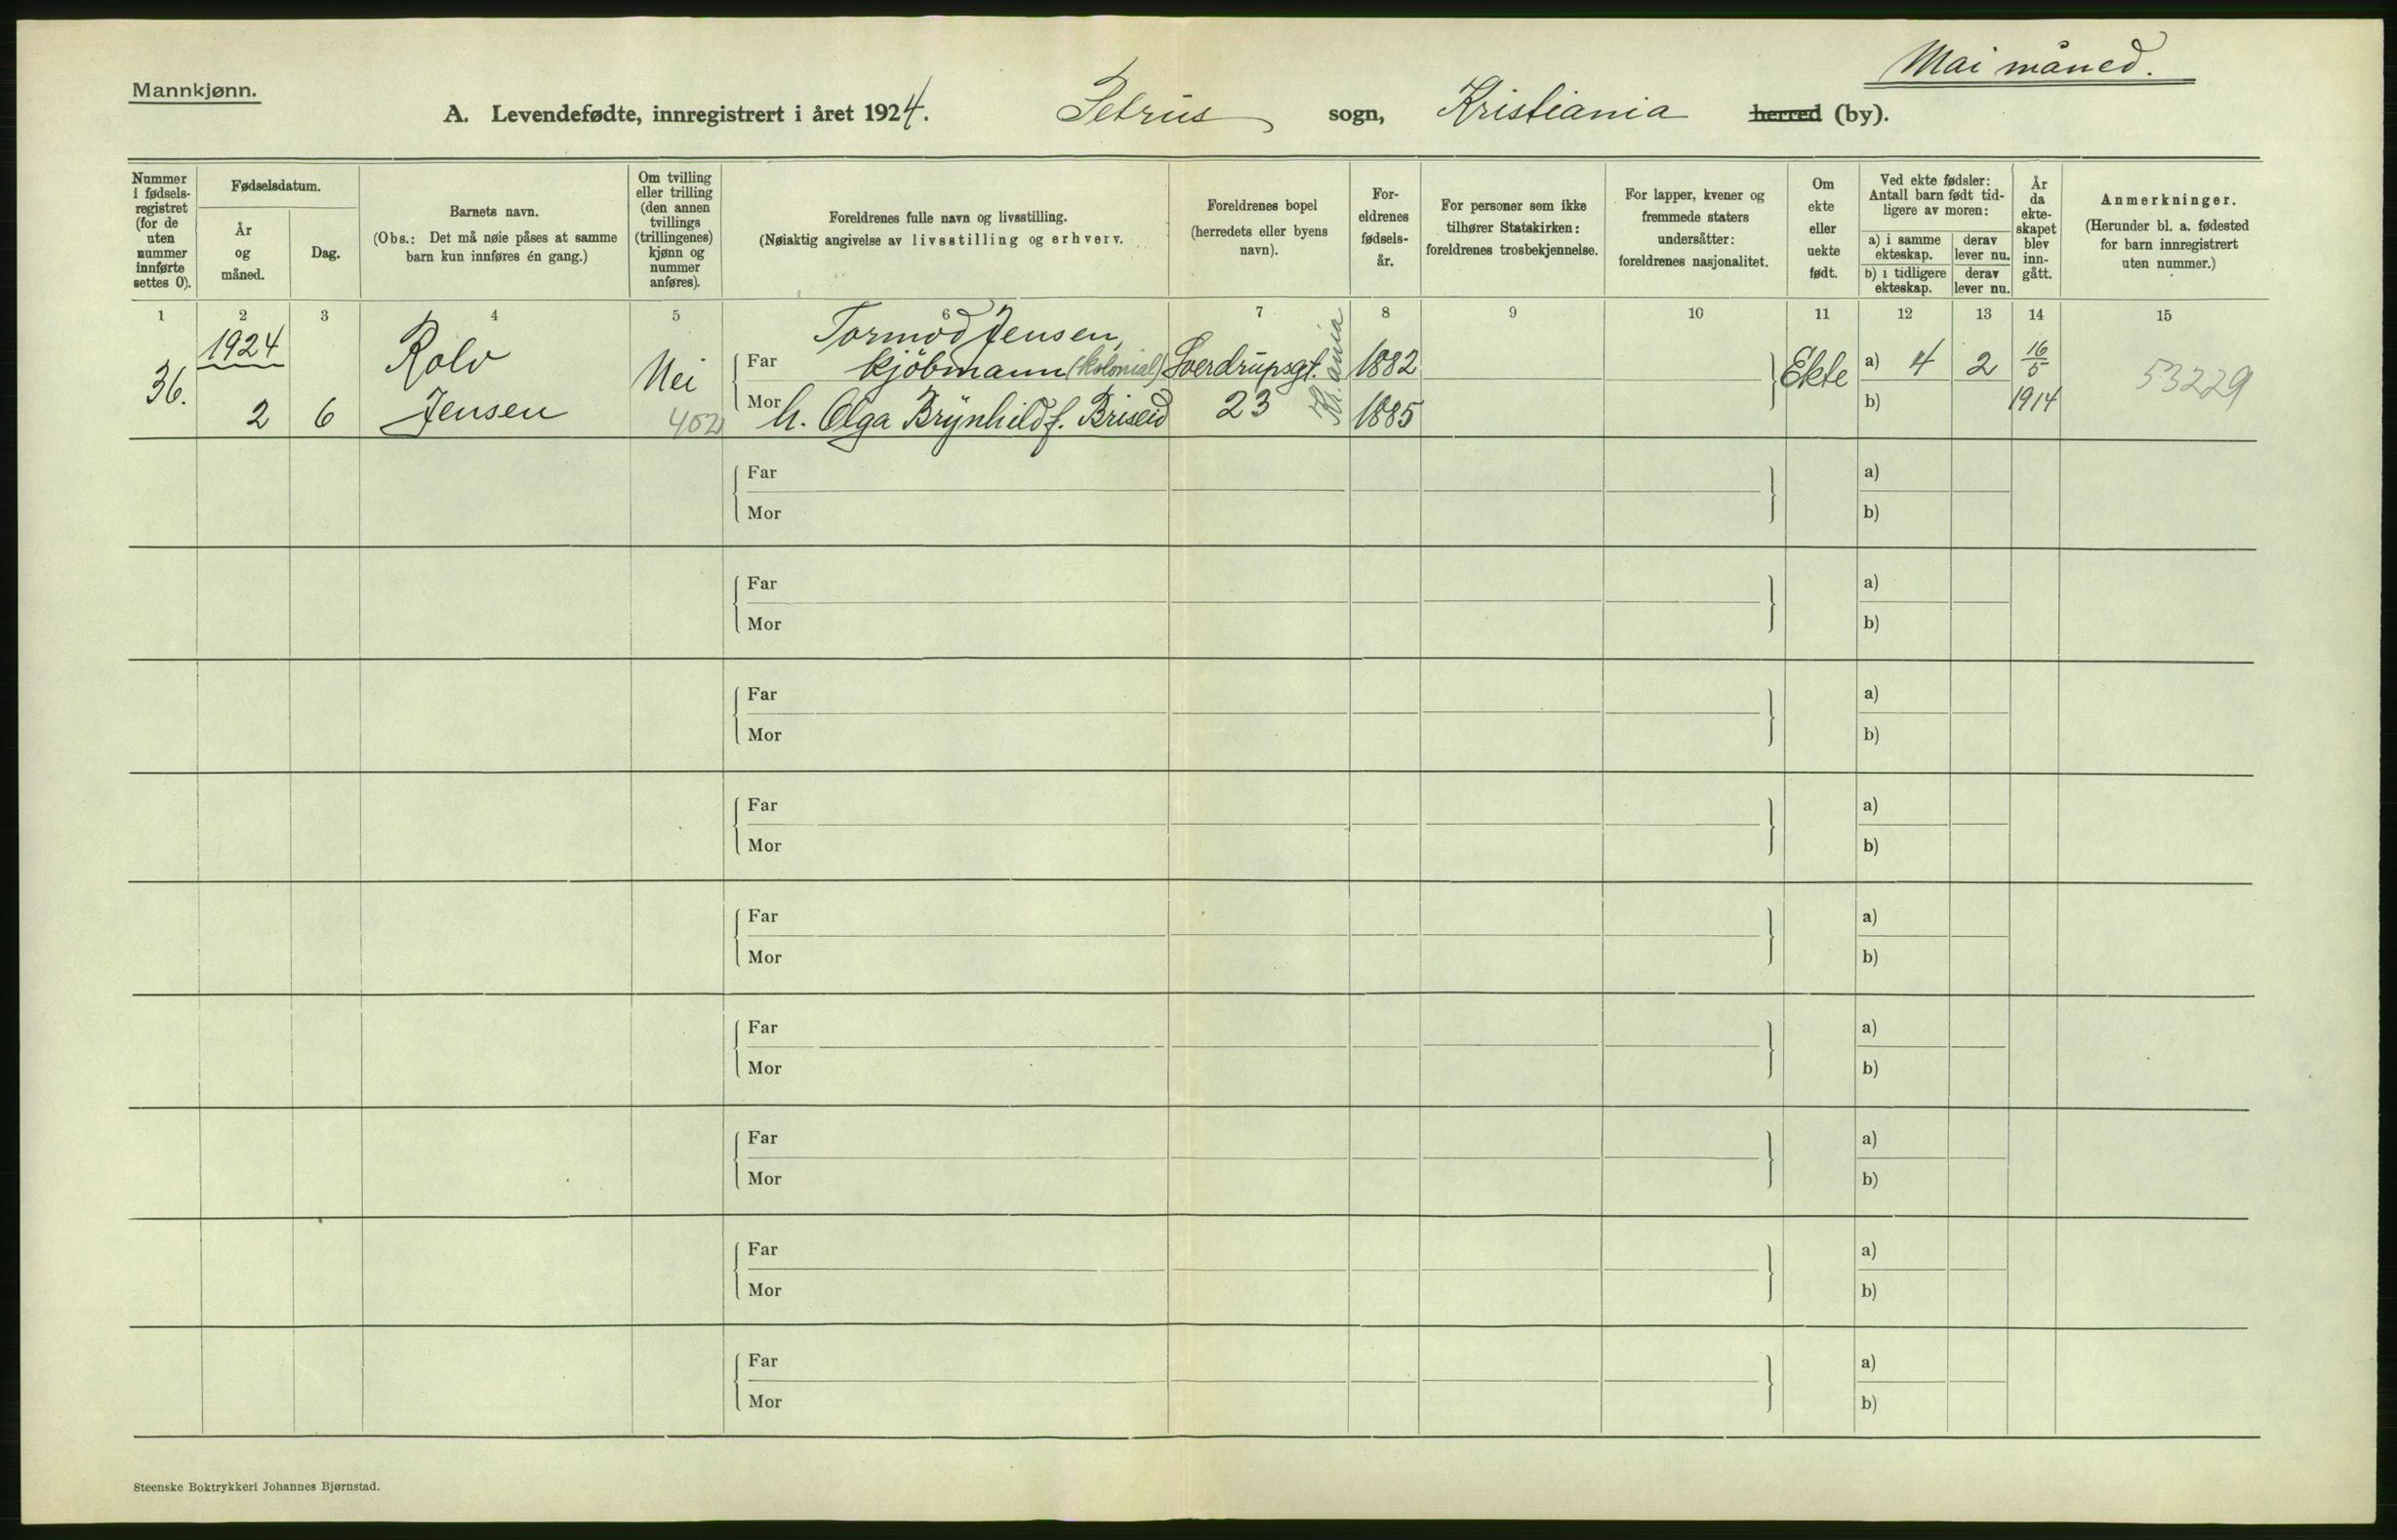 Mai måned.
Mannkjønn.
A. Levendefødte, innregistrert i året 1924. Petrus sogn, Kristiania herred (by).
Nummer i fødsels-registret (for de uten nummer innførte settes 0).
Fødselsdatum.
År og måned.
Dag.
Barnets navn.
(Obs.: Det må nøie påses at samme barn kun innføres én gang.)
Om tvilling eller trilling (den annen tvillings (trillingenes) kjønn og nummer anføres).
Foreldrenes fulle navn og livsstilling.
(Nøiaktig angivelse av livsstilling og erhverv.
Foreldrenes bopel (herredets eller byens navn).
For-eldrenes fødsels-år.
For personer som ikke tilhører Statskirken: foreldrenes trosbekjennelse.
For lapper, kvener og fremmede staters undersåtter: foreldrenes nasjonalitet.
Om ekte eller uekte født.
Ved ekte fødsler: Antall barn født tid-ligere av moren:
a) i samme ekteskap.
derav lever nu.
b) i tidligere ekteskap.
derav lever nu.
År da ekte-skapet blev inn-gått.
Anmerkninger.
(Herunder bl. a. fødested for barn innregistrert uten nummer.)
1 2 3 4 5 6 7 8 9 10 11 12 13 14 15
36.
1924
2 6
Rolv
Jensen
Nei
402
Tormod Jensen,
Far kjöbmann (kolonial)
Mor h. Olga Brynhild f. Briseid
Sverdrupsgt.
23
Kr.ania
1882
1885
Ekte
a) 4 2
b)
16/5
1914
53229
Far a)
Mor b)
Far a)
Mor b)
Far a)
Mor b)
Far a)
Mor b)
Far a)
Mor b)
Far a)
Mor b)
Far a)
Mor b)
Far a)
Mor b)
Far a)
Mor b)
Steenske Boktrykkeri Johannes Bjørnstad.